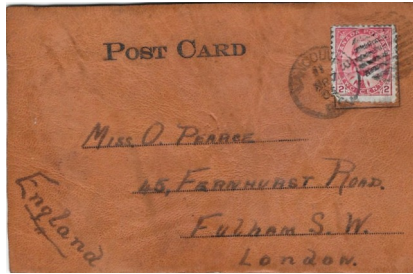 POST CARD
MISS O. PEARCE
45, FERNHURST ROAD.
FULHAM S. W.
London.
England
2 2